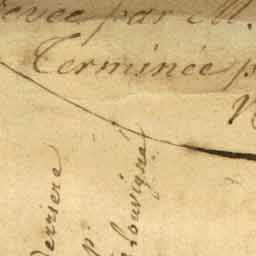 par M.
Terminée p
Verriere
P.
Louvignié